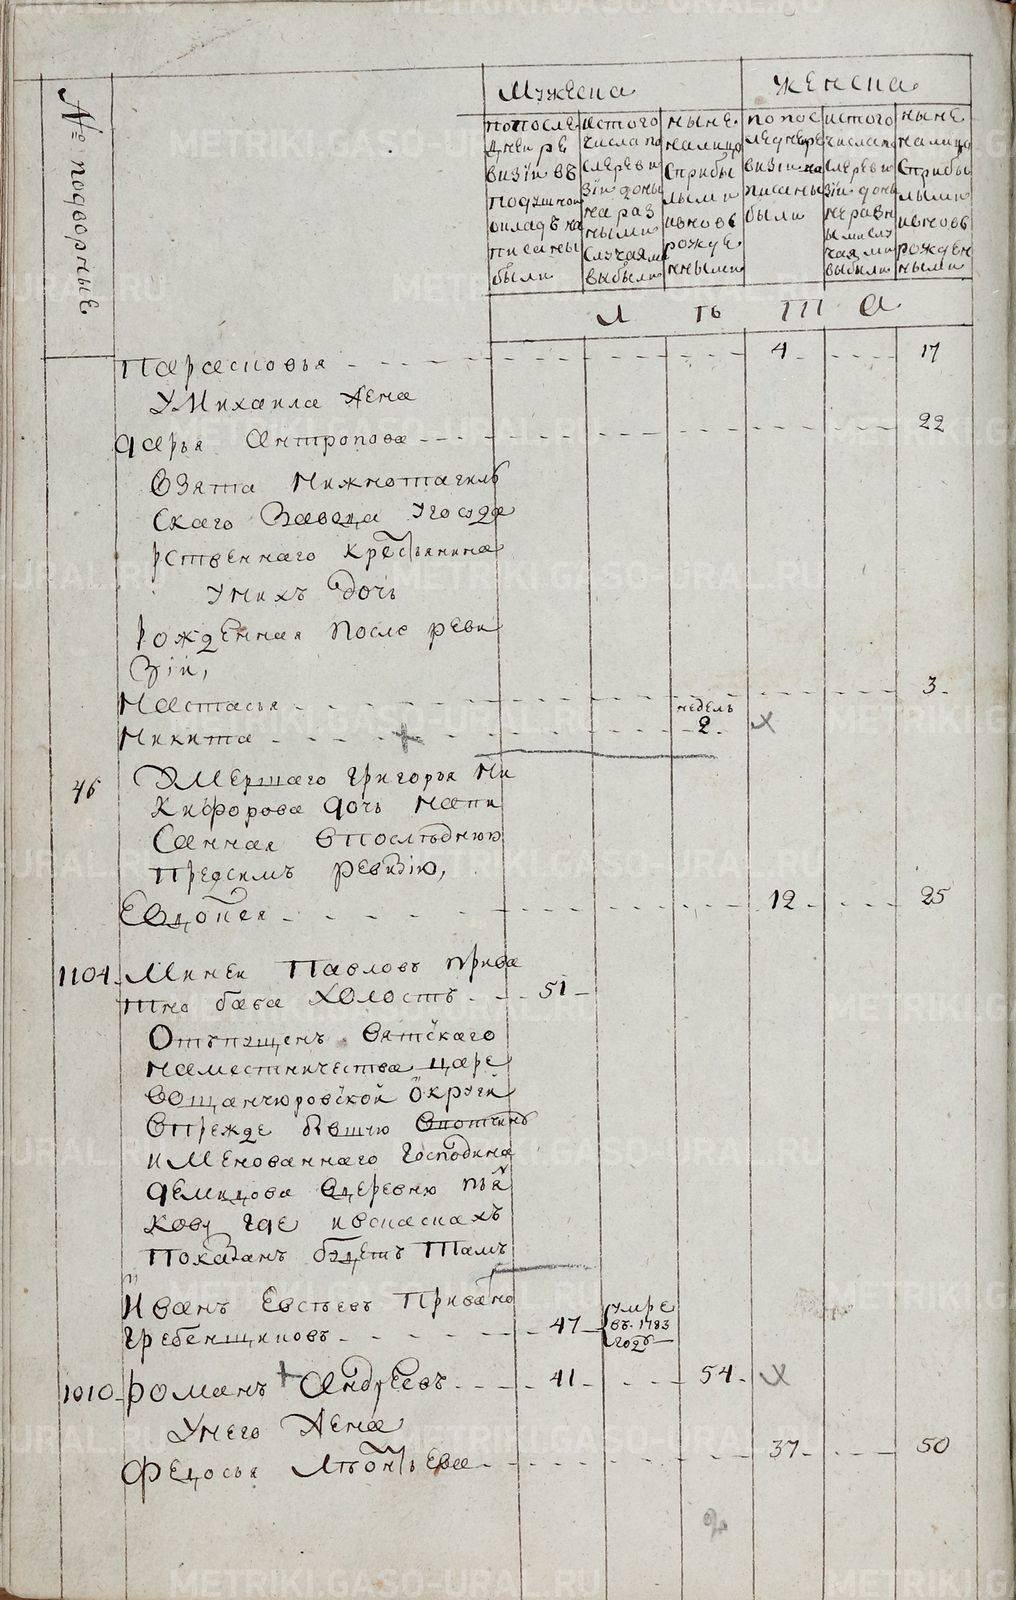 № подворные
Мужеска
Женска
попосле
дней ре
визіи въ
подушном
окладъ на
писаны
были
истого
числа по
слереви
зіи доны
на раз
ными
случаями
выбыли
ныне
налицо
сприбы
лыми
ивновь
рожде
нными
попос
ледней ре
визіи на
писаны
были
истого
числапо
слереви
зіи доны
неразн
ыми слу
чаями
выбыли
ныне
налицо
сприбы
лыми
ивновь
рожден
ными
Л ѣ т а
Парасковья 4 17
У Михаила жена
дарья Антропова 22
Взята Нижнотагиль
скаго Завода Угосуда
рственнаго крестьянина
Унихъ дочь
Рожденная после реви
зіи,
Настасья 3
Никита недель 2
46 Умершаго Григорья Ни
кифорова дочь напи
санная впоследнюю
предсимъ ревизію,
Евдокея 12 25
1104 Миней Павловъ прива
тно бава холостъ 51
Отпущенъ Вятскаго
наместничества царе
вощанчюровской Округи
впрежде бывшую вотчинѣ
имЕнованнаго Господина
демидова вдеревню
кову где ивсказкахъ
показанъ будетъ тамъ
Иванъ Евсѣевъ Приватно
Гребенщиковъ 47 умре въ 1783 годѣ
1010 Романъ Андреевъ 41 54
Унего жена
Федосья Лѣонтьева 37 50
METRIKI.GASO-URAL.RU